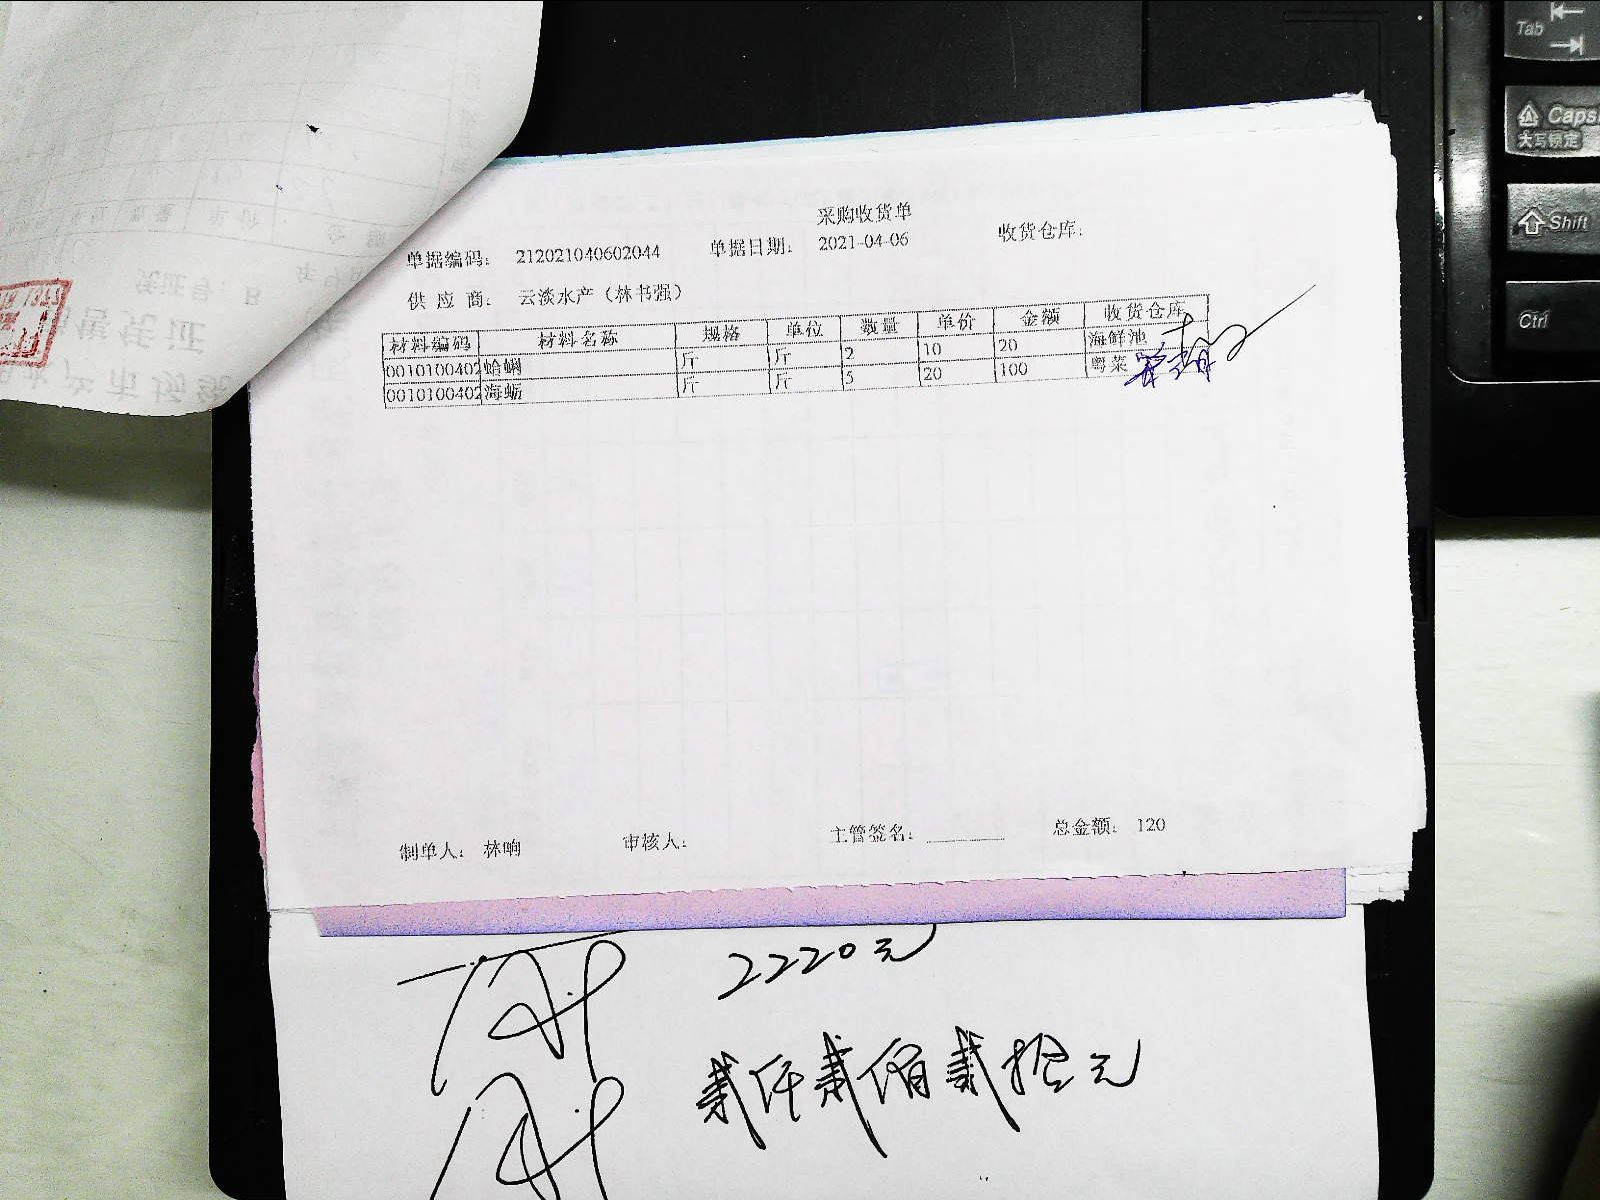 采购收货单
单据编码： 212021040602044 单据日期： 2021-04-06 收货仓库：
供 应 商： 云淡水产（林书强）
材料编码 材料名称 规格 单位 数量 单价 金额 收货仓库
0010100402 蛤蜊 斤 斤 2 10 20 海鲜池
0010100402 海蛎 斤 斤 5 20 100 粤菜
制单人： 林响 审核人： 主管签名： 总金额： 120
2220元
贰仟贰佰贰拾元
Tab
Caps
大写锁定
Shift
Ctrl